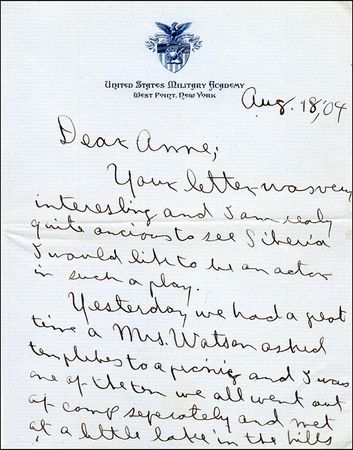 United States Military Academy
West Point, New York
Aug. 18,'04
Dear Anne;
Your letter was very
interesting and I am realy
quite ancious to see Siberia
I would lik to be an actor
in such a play.
Yesterday we had a great
time a Mrs. Watson asked
ten plebes to a picnic and I was
one of the ten we all went out
of camp seperately and met
at a little lake in the hills